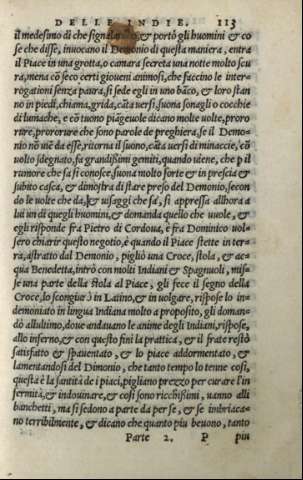 DELLE INDIE. 113
il medesimo di che , & portò gli huomini & co
se che disse, inuocano il Demonio di questa maniera, entra
il Piace in una grotta, o camara secreta una notte molto scu
ra, mena cõ seco certi gioueni animosi, che faccino le inter-
rogationi senza paura, si sede egli in uno bãco, & loro stan
no in piedi, chiama, grida, cãta uersi, suona sonagli o cocchie
di lumache, e cõ tuono piageuole dicano molte uolte, proro
rure, prororure che sono parole de preghiera, se il Demo-
nio nõ uiẽ da esse, ritorna il suono, cãta uersi di minaccie, cõ
uolto sdegnato, fa grandissimi gemiti, quando uiene, che p il
rumore che fa si conosce, suona molto forte & in prescia &
subito casca, & dimostra di stare preso del Demonio, secon
do le uolte che da, & usaggi che fa, si appressa allhora a
lui un di quegli huomini, & demanda quello che uuole, &
egli risponde fra Pietro di Cordoua, e fra Dominico uol-
sero chiarir questo negotio, è quando il Piace stette in ter-
ra, astratto dal Demonio, pigliò una Croce, stola, & ac-
qua Benedetta, intrò con molti Indiani & Spagnuoli, mis-
se una parte della stola al Piace, gli fece il segno della
Croce, lo scongiurò in Latino, & in uolgare, rispose lo in-
demoniato in lingua Indiana molto a proposito, gli doman-
dò allultimo, doue andauano le anime degli Indiani, rispose,
allo inferno, & con questo fini la prattica, & il frate restò
satisfatto & spauentato, & lo piace addormentato, &
lamentandosi del Dimonio, che tanto tempo lo tenne cosi,
questa è la santità de i piaci, pigliano prezzo per curare l'in
fermità, & indouinare, & cosi sono ricchissimi, uanno alli
banchetti, ma si sedono a parte da per se, & se imbriaca-
no terribilmente, & dicano che quanto piu beuono, tanto
Parte 2. P piu